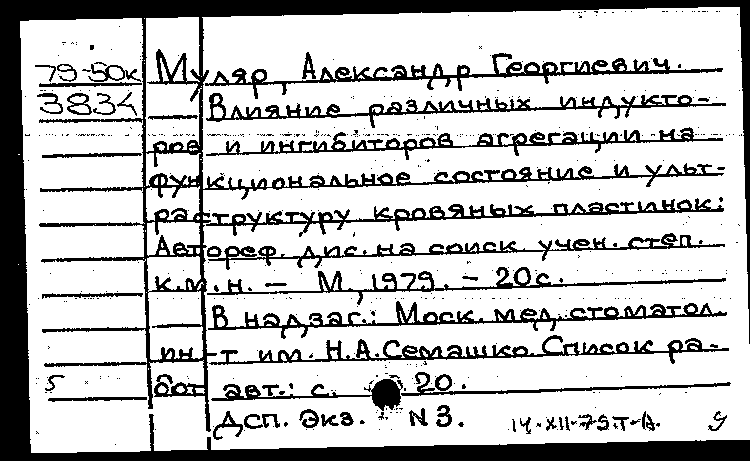 79-50к Муляр, Александр Георгиевич.
3834 Влияние различных индукто-
ров и ингибиторов агрегации на
функциональное состояние иульт-
раструктуру кровяных пластинок:
Автореф. дис. на соиск. учен. степ.
к.м.н. — М., 1979. - 20с.
В надзаг.: Моск. мед. стоматол.
ин-т им. Н.А.Семашко. Список ра-
5 бот авт.: с. 20.
Дсп. Экз. N3. 14-XII-79.Т-А.